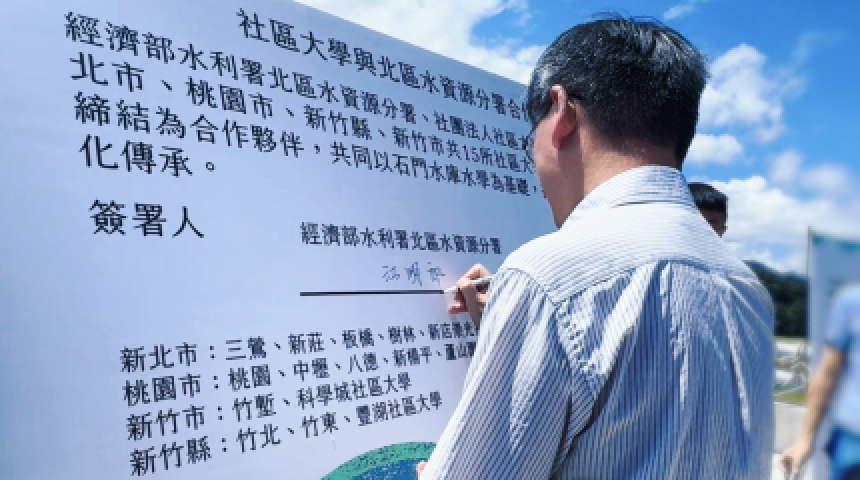 社區大學與北區水資源分署合
經濟部水利署北區水資源分署、社團法人社區
北市、桃園市、新竹縣、新竹市共15所社區大
締結為合作夥伴，共同以石門水庫水學為基礎，
化傳承。
簽署人
經濟部水利署北區水資源分署
新北市：三鶯、新莊、板橋、樹林、新店崇光
桃園市：桃園、中壢、八德、新楊平、蘆山
新竹市：竹塹、科學城社區大學
新竹縣：竹北、竹東、豐湖社區大學